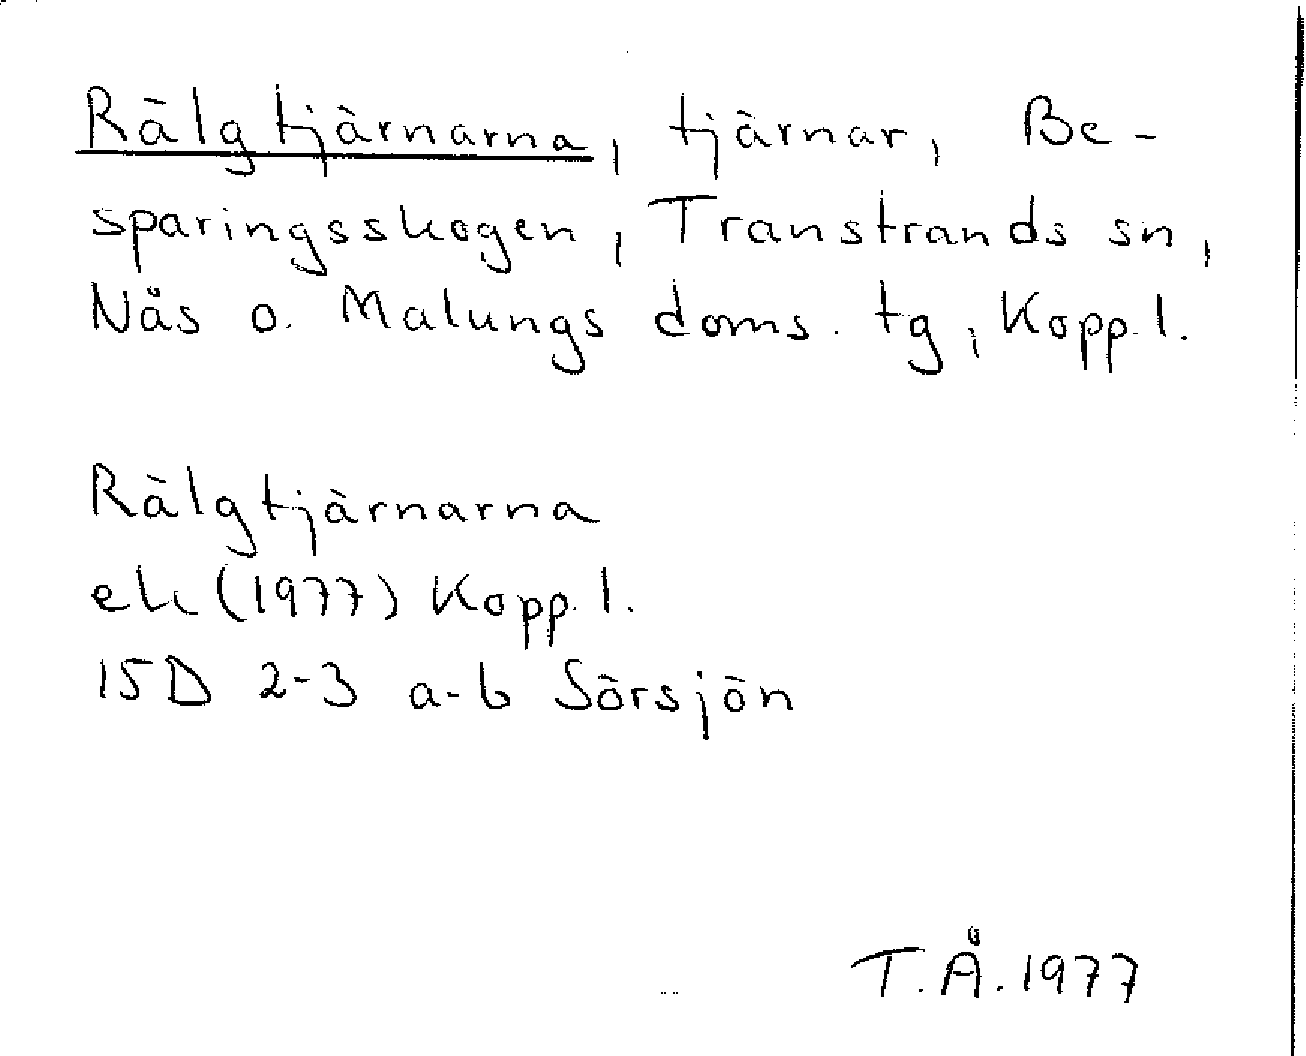 Rälgtjärnarna, tjärnar, Be-
sparingsskogen, Transtrands sn,
Nås o. Malungs doms. tg, Kopp. l.
Rälgtjärnarna
ek (1977) Kopp. l.
15D 2-3 a-b Sörsjön
T.Å. 1977